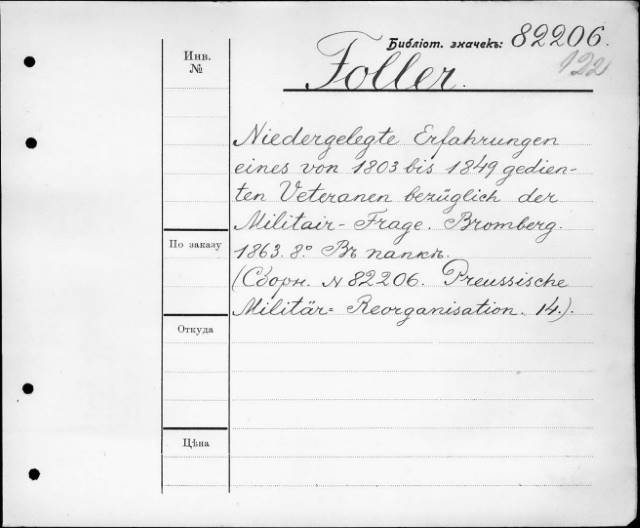 Библіот. значекъ: 82206.
122
Инв.
№
Foller.
Niedergelegte Erfahrungen
eines von 1803 bis 1849 gedien-
ten Veteranen bezüglich der
Militair-Frage. Bromberg.
По заказу
1863. 8.° Въ папкѣ.
(Сборн. N 82206. Preussische
Militär-Reorganisation. 14.).
Откуда
Цѣна